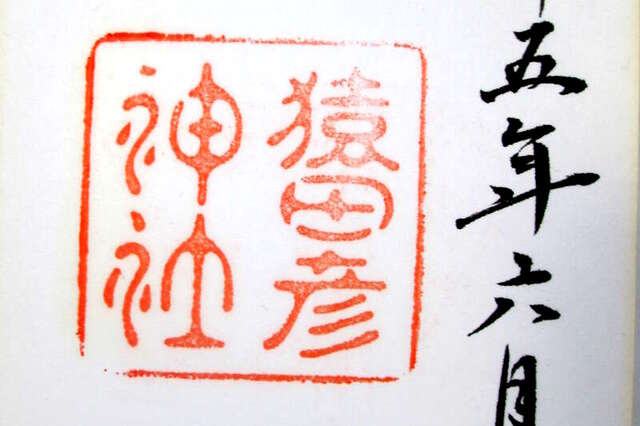 五年六月
猿田彦
神社